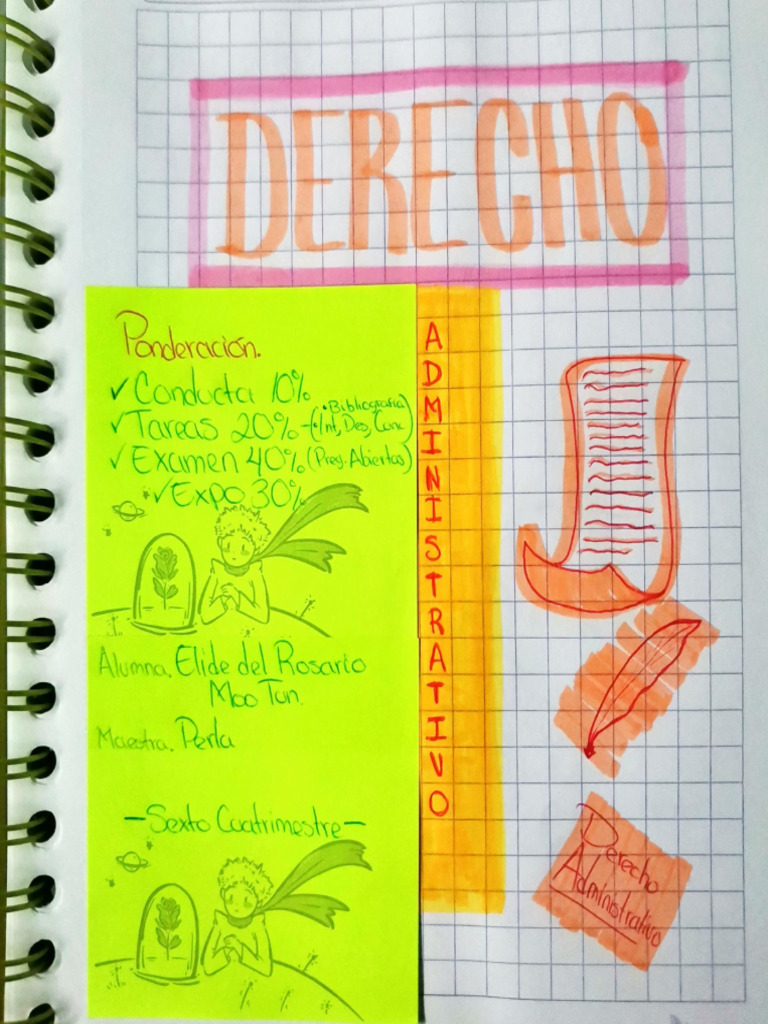 DERECHO
ADMINISTRATIVO
Ponderación.
✓ Conducta 10%
✓ Tareas 20% - (Int, Des, Conc
• Bibliografia)
✓ Examen 40% (Preg. Abiertas)
✓ Expo 30%
Alumna. Elide del Rosario
Moo Tun.
Maestra. Perla
- Sexto Cuatrimestre -
Derecho
Administrativo